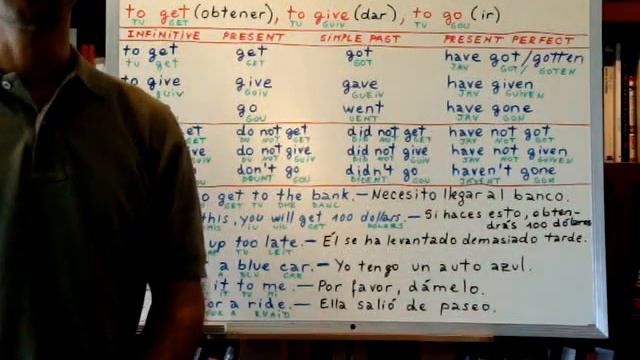 to get (obtener), to give (dar), to go (ir)
TU GET TU GUIV TU GOU
INFINITIVE PRESENT SIMPLE PAST PRESENT PERFECT
to get get got have got/gotten
TU GET GET GOT JAV GOT/GOTEN
to give give gave have given
GUIV GUIV GUEIV JAV GUIVEN
go went have gone
GOU UENT JAV GON
et do not get did not get have not got
ET DU NOT GET DID NOT GET JAV NOT GOT
do not give did not give have not given
DU NOT GUIV DID NOT GUIV JAV NOT GUIVEN
don't go didn't go haven't gone
DOUNT GOU GOU GON
o get to the bank.— Necesito llegar al banco.
GET TU
this, you will get 100 dollars.— Si haces esto, obten-
drás 100 dólares
up too late.— Él se ha levantado demasiado tarde.
a blue car.— Yo tengo un auto azul.
it to me.— Por favor, dámelo.
or a ride.— Ella salió de paseo.
FOR A RUAID